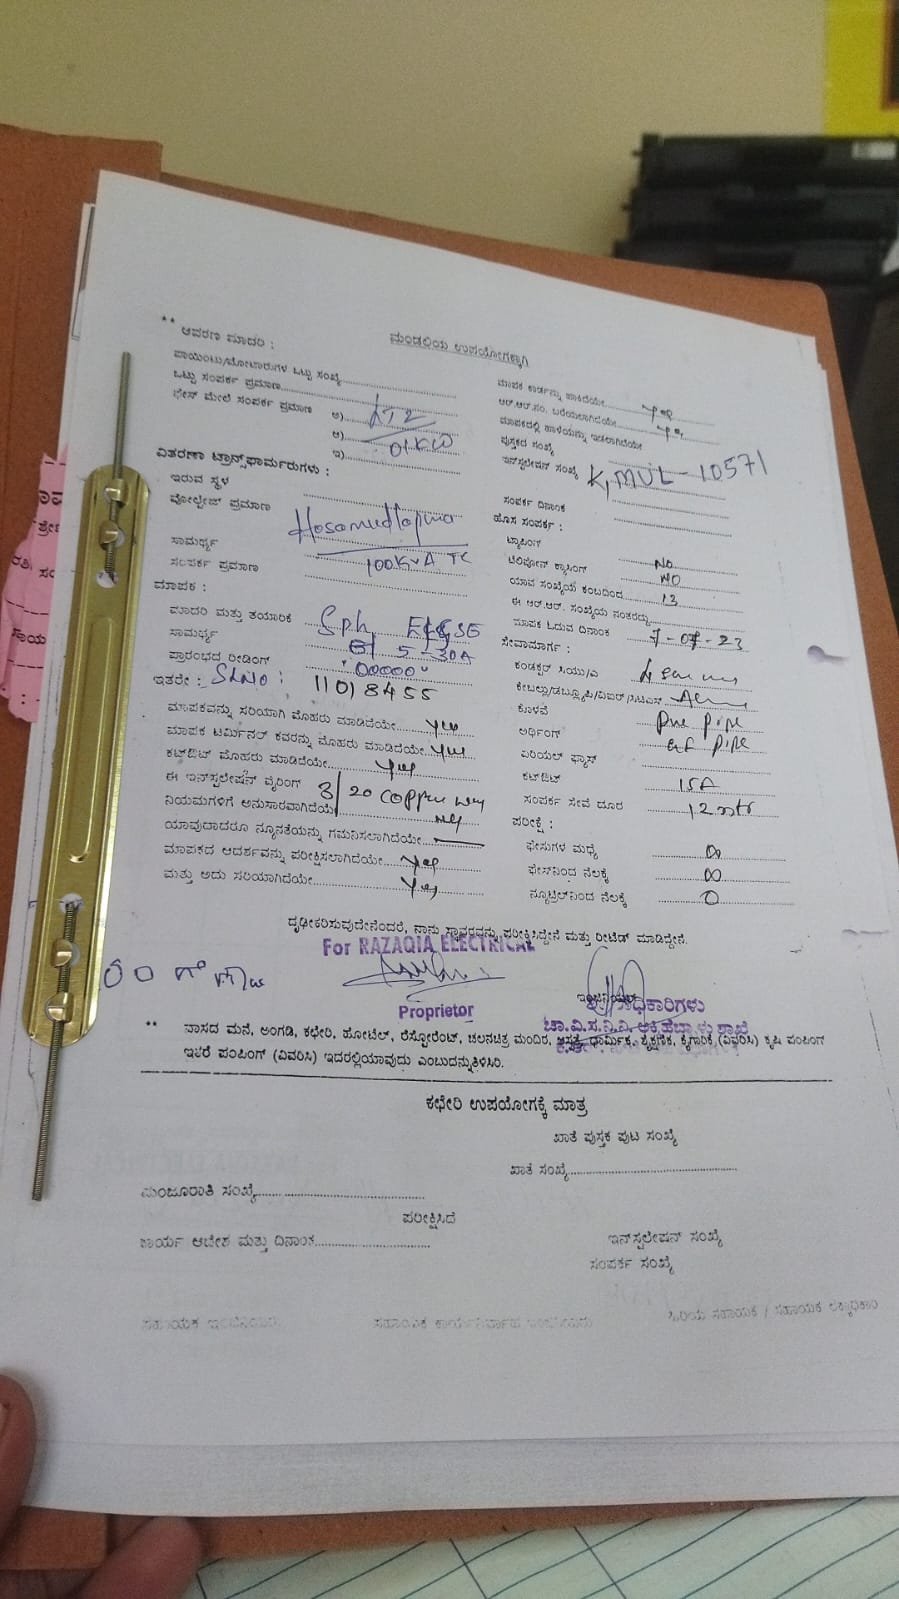 ** ಆವರಣ ಮಾದರಿ :
ಮಂಡಲಿಯ ಉಪಯೋಗಕ್ಕಾಗಿ
ಪಾಯಿಂಟು/ಮೋಟಾರುಗಳ ಒಟ್ಟು ಸಂಖ್ಯೆ
ಒಟ್ಟು ಸಂಪರ್ಕ ಪ್ರಮಾಣ
ಫೇಸ್ ಮೇಲೆ ಸಂಪರ್ಕ ಪ್ರಮಾಣ ಅ) LT2
ಆ) 01KW
ಇ)
ವಿತರಣಾ ಟ್ರಾನ್ಸ್‌ಫಾರ್ಮರುಗಳು :
ಇರುವ ಸ್ಥಳ
ವೋಲ್ಟೇಜ್ ಪ್ರಮಾಣ
ಸಾಮರ್ಥ್ಯ 100KVA TC
ಸಂಪರ್ಕ ಪ್ರಮಾಣ
ಮಾಪಕ :
ಮಾದರಿ ಮತ್ತು ತಯಾರಿಕೆ Sph
ಸಾಮರ್ಥ್ಯ 5-30A
ಪ್ರಾರಂಭದ ರೀಡಿಂಗ್ "00000"
ಇತರೇ : SLNO: 11018455
ಮಾಪಕವನ್ನು ಸರಿಯಾಗಿ ಮೊಹರು ಮಾಡಿದೆಯೇ yes
ಮಾಪಕ ಟರ್ಮಿನಲ್ ಕವರನ್ನು ಮೊಹರು ಮಾಡಿದೆಯೇ yes
ಕಟ್‌ಔಟ್ ಮೊಹರು ಮಾಡಿದೆಯೇ yes
ಈ ಇನ್‌ಸ್ಟಲೇಷನ್ ವೈರಿಂಗ್ 3/20 copper
ನಿಯಮಗಳಿಗೆ ಅನುಸಾರವಾಗಿದೆಯೆ
ಯಾವುದಾದರೂ ನ್ಯೂನತೆಯನ್ನು ಗಮನಿಸಲಾಗಿದೆಯೇ
ಮಾಪಕದ ಆದರ್ಶವನ್ನು ಪರೀಕ್ಷಿಸಲಾಗಿದೆಯೇ yes
ಮತ್ತು ಅದು ಸರಿಯಾಗಿದೆಯೇ yes
ಮಾಪಕ ಕಾರ್ಡನ್ನು ಹಾಕಿದೆಯೇ yes
ಆರ್.ಆರ್.ನಂ. ಬರೆಯಲಾಗಿದೆಯೇ yes
ಮಾಪಕದಲ್ಲಿ ಹಾಳೆಯನ್ನು ಇಡಲಾಗಿದೆಯೇ
ಪುಸ್ತಕದ ಸಂಖ್ಯೆ
ಇನ್‌ಸ್ಟಲೇಷನ್ ಸಂಖ್ಯೆ KMUL-10571
ಸಂಪರ್ಕ ದಿನಾಂಕ
ಹೊಸ ಸಂಪರ್ಕ :
ಟ್ಯಾಪಿಂಗ್
ಟೆಲಿಫೋನ್ ಕ್ರಾಸಿಂಗ್ NO
NO
ಯಾವ ಸಂಖ್ಯೆಯ ಕಂಬದಿಂದ 13
ಈ ಆರ್.ಆರ್. ಸಂಖ್ಯೆಯ ನಂತರದ್ದು
ಮಾಪಕ ಓದುವ ದಿನಾಂಕ 7-07-23
ಸೇವಾಮಾರ್ಗ :
ಕಂಡಕ್ಟರ್ ಸಿಯು/ಎ
ಕೇಬಲ್ಲು/ಡಬ್ಲ್ಯೂಪಿ/ವಿಐಆರ್/ಸಿಟಿಎಸ್
ಕೊಳವೆ pvc pipe
ಅರ್ಥಿಂಗ್ GI pipe
ಏರಿಯಲ್ ಫ್ಯೂಸ್
ಕಟ್‌ಔಟ್ 15A
ಸಂಪರ್ಕ ಸೇವೆ ದೂರ 12mtr
ಪರೀಕ್ಷೆ :
ಫೇಸುಗಳ ಮಧ್ಯೆ ∞
ಫೇಸ್‌ನಿಂದ ನೆಲಕ್ಕೆ ∞
ನ್ಯೂಟ್ರಲ್‌ನಿಂದ ನೆಲಕ್ಕೆ 0
ದೃಢೀಕರಿಸುವುದೇನೆಂದರೆ, ನಾನು ಸ್ಥಾವರವನ್ನು ಪರೀಕ್ಷಿಸಿದ್ದೇನೆ ಮತ್ತು ರೀಟೆಡ್ ಮಾಡಿದ್ದೇನೆ.
For RAZAQIA ELECTRICAL
Proprietor
** ವಾಸದ ಮನೆ, ಅಂಗಡಿ, ಕಛೇರಿ, ಹೋಟೆಲ್, ರೆಸ್ಟೋರೆಂಟ್, ಚಲನಚಿತ್ರ ಮಂದಿರ, ಆಸ್ಪತ್ರೆ, ಧಾರ್ಮಿಕ, ಶೈಕ್ಷಣಿಕ, ಕೈಗಾರಿಕೆ, (ವಿವರಿಸಿ) ಕೃಷಿ ಪಂಪಿಂಗ್
ಇತರೆ ಪಂಪಿಂಗ್ (ವಿವರಿಸಿ) ಇದರಲ್ಲಿಯಾವುದು ಎಂಬುದನ್ನುತಿಳಿಸಿರಿ.
ಕಛೇರಿ ಉಪಯೋಗಕ್ಕೆ ಮಾತ್ರ
ಖಾತೆ ಪುಸ್ತಕ ಪುಟ ಸಂಖ್ಯೆ
ಖಾತೆ ಸಂಖ್ಯೆ
ಮಂಜೂರಾತಿ ಸಂಖ್ಯೆ
ಪರೀಕ್ಷಿಸಿದೆ
ಕಾರ್ಯ ಆದೇಶ ಮತ್ತು ದಿನಾಂಕ
ಇನ್‌ಸ್ಟಲೇಷನ್ ಸಂಖ್ಯೆ
ಸಂಪರ್ಕ ಸಂಖ್ಯೆ
ಸಹಾಯಕ ಇಂಜಿನಿಯರು
ಸಹಾಯಕ ಕಾರ್ಯನಿರ್ವಾಹ ಇಂಜಿನಿಯರು
ಹಿರಿಯ ಸಹಾಯಕ / ಸಹಾಯಕ ಲೆಕ್ಕಾಧಿಕಾರಿ